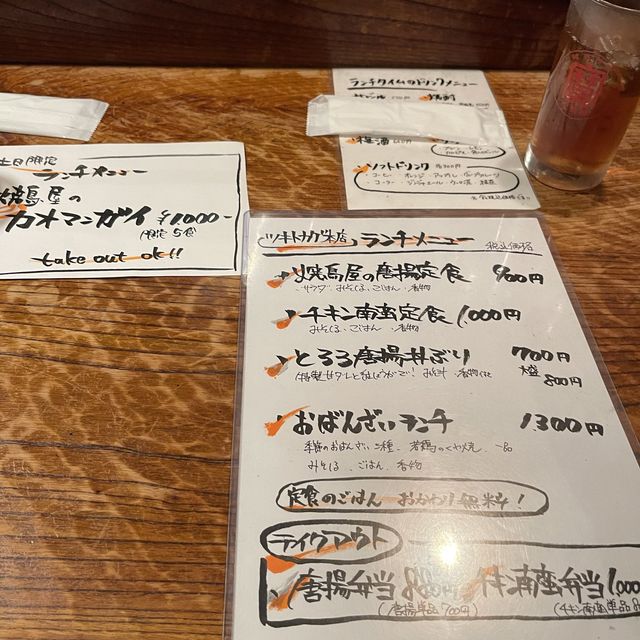 土日限定
ランチメニュー
焼鳥屋の
カオマンガイ ¥1000-
限定5食
take out ok!!
ランチタイムのドリンクメニュー
梅酒
ソフトドリンク
ランチメニュー
税込価格
焼鳥屋の唐揚定食 900円
サラダ みそしる、ごはん、香物
チキン南蛮定食 1,000円
みそしる、ごはん 香物
とろろ唐揚丼ぶり 700円
大盛
800円
おばんざいランチ 1300円
季節のおばんざい二種、若鶏のくわ焼、一品
みそしる、ごはん、香物
定食のごはん おかわり無料!
テイクアウト
唐揚弁当 880円 チキン南蛮弁当 1000
(唐揚単品700円) (チキン南蛮単品